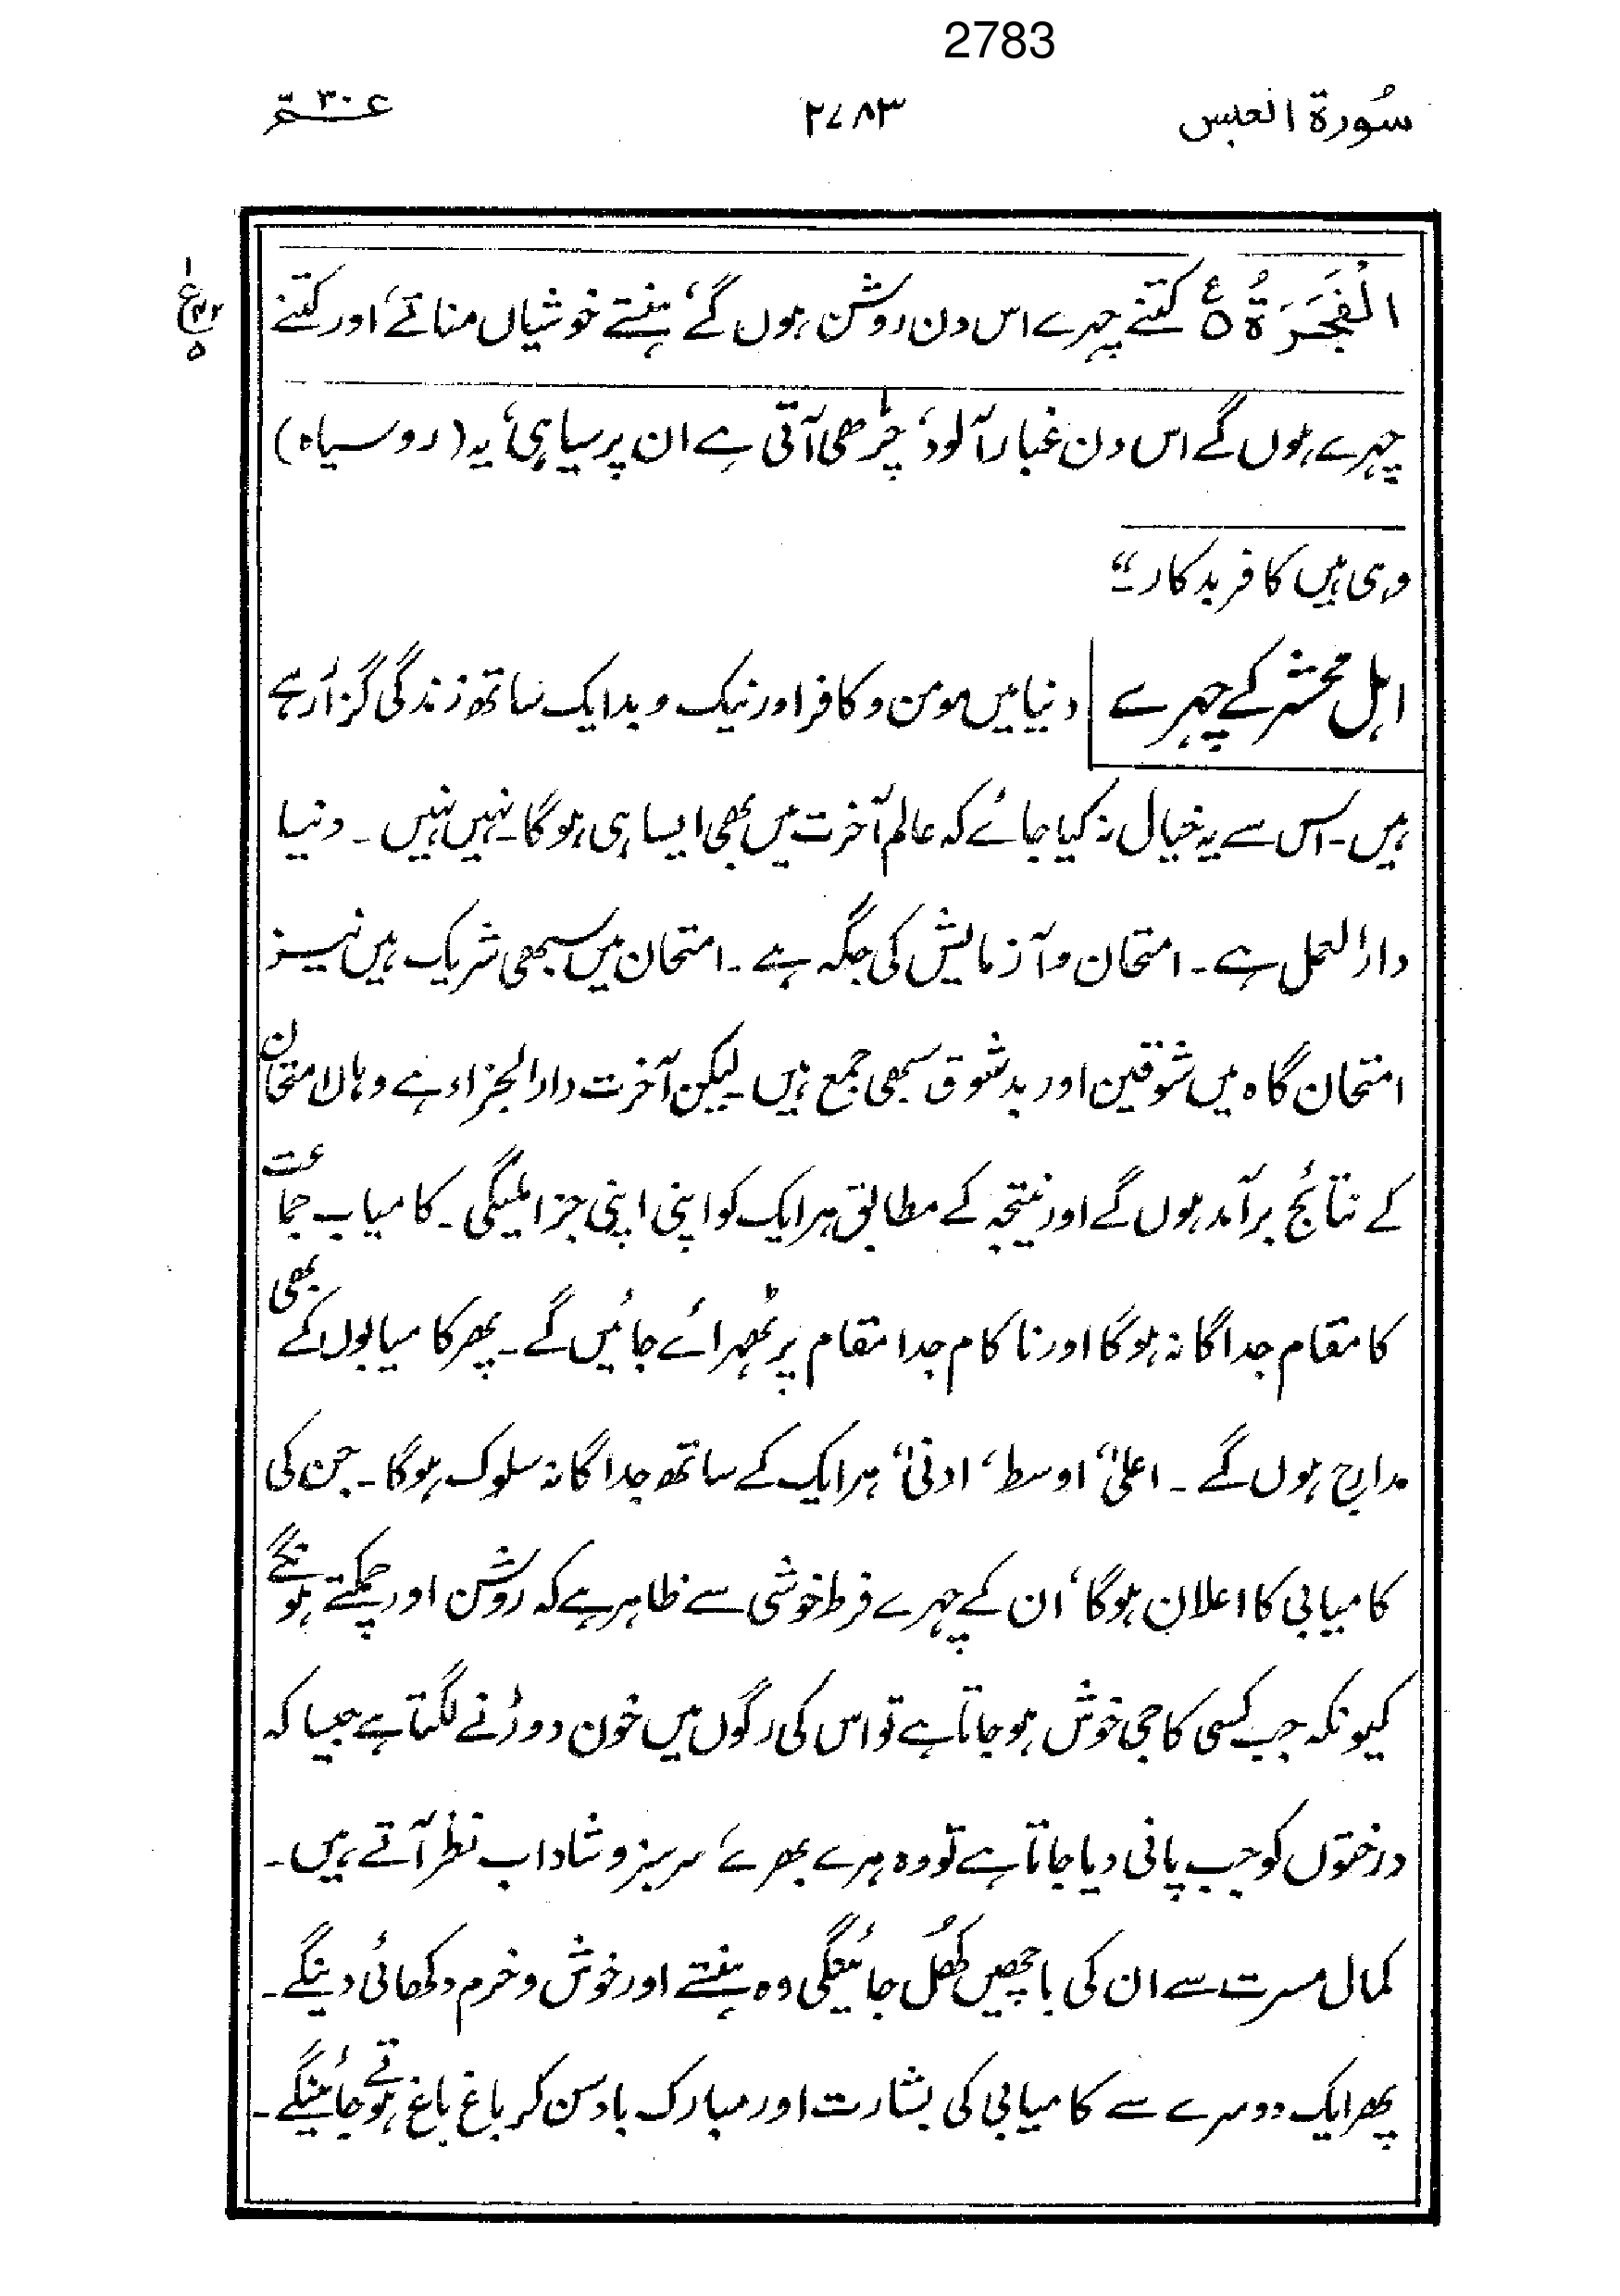 2783
سُورۃ العبس ۲۷۸۳ عمّ ۳۰
الْفَجَرَةُ ۝ ع کتنے چہرے اس دن روشن ہوں گے، ہنستے خوشیاں مناتے، اور کتنے
چہرے ہوں گے اس دن غبار آلود، چڑھی آتی ہے ان پر سیاہی، یہ (روسیاہ)
وہی ہیں کافر بدکار۔“
اہل محشر کے چہرے دنیا میں مومن و کافر اور نیک و بد ایک ساتھ زندگی گزار رہے
ہیں۔ اس سے یہ خیال نہ کیا جائے کہ عالم آخرت میں بھی ایسا ہی ہوگا۔ نہیں نہیں۔ دنیا
دارالعمل ہے۔ امتحان و آزمایش کی جگہ ہے۔ امتحان میں سبھی شریک ہیں نیز
امتحان گاہ میں شوقین اور بدشوق سبھی جمع ہیں۔ لیکن آخرت دارالجزاء ہے وہاں امتحان
کے نتائج برآمد ہوں گے اور نتیجہ کے مطابق ہر ایک کو اپنی اپنی جزا ملیگی۔ کامیاب جماعت
کا مقام جداگانہ ہوگا اور ناکام جدا مقام پر ٹھہرائے جائیں گے۔ پھر کامیابوں کے بھی
مدارج ہوں گے۔ اعلیٰ، اوسط، ادنیٰ، ہر ایک کے ساتھ جداگانہ سلوک ہوگا۔ جن کی
کامیابی کا اعلان ہوگا، ان کے چہرے فرط خوشی سے ظاہر ہے کہ روشن اور چمکتے ہونگے
کیونکہ جب کسی کا جی خوش ہو جاتا ہے تو اس کی رگوں میں خون دوڑنے لگتا ہے جیسا کہ
درختوں کو جب پانی دیا جاتا ہے تو وہ ہرے بھرے، سرسبز و شاداب نظر آتے ہیں۔
کمال مسرت سے ان کی باچھیں کھُل جائینگی وہ ہنستے اور خوش و خرم دکھائی دینگے۔
پھر ایک دوسرے سے کامیابی کی بشارت اور مبارک باد سن کر باغ باغ ہوتے جائینگے۔